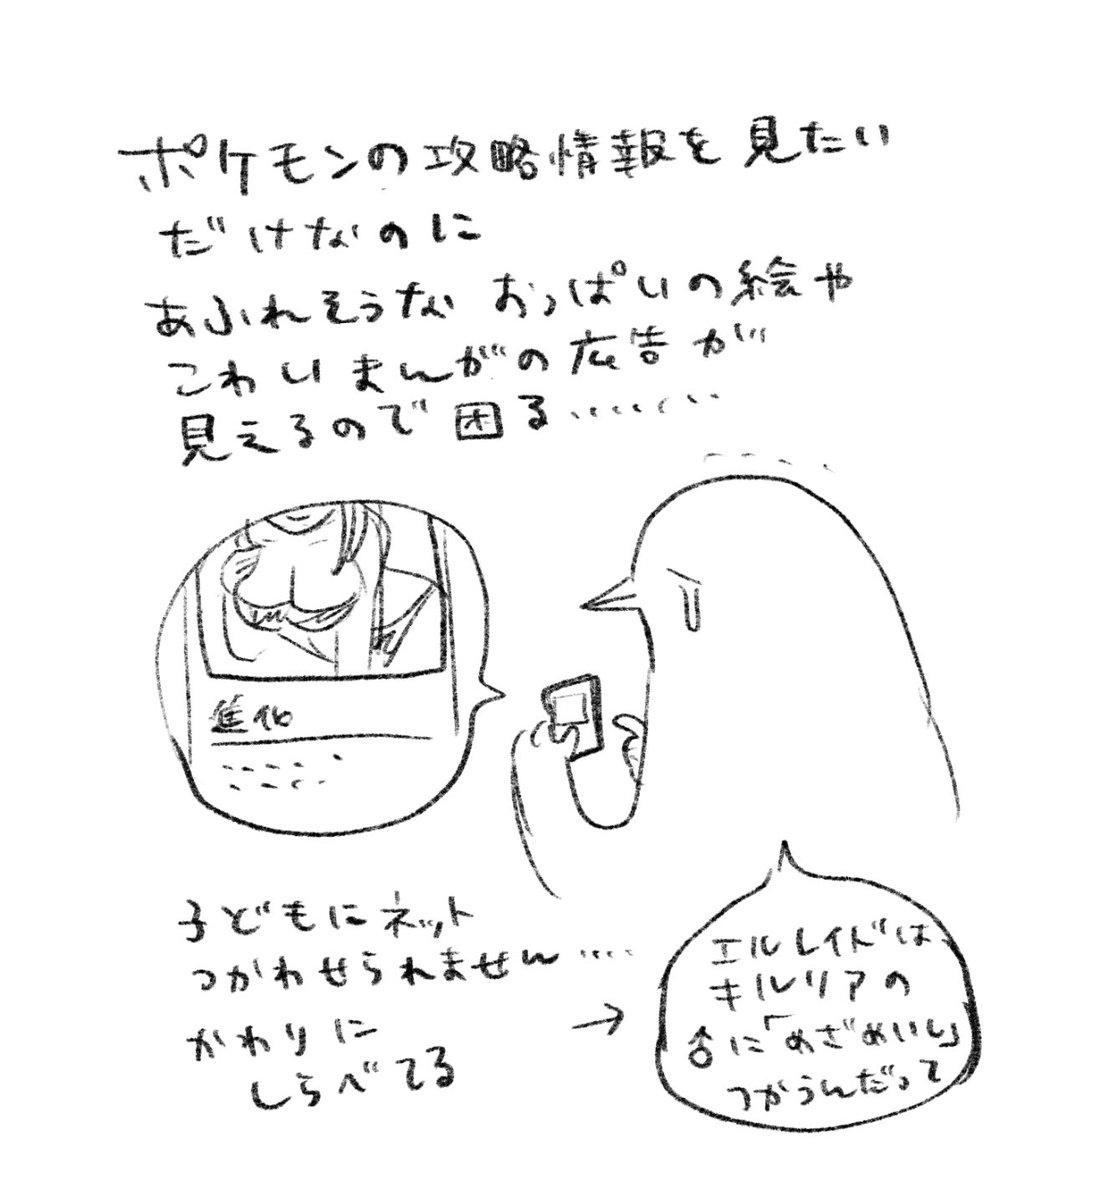 ポケモンの攻略情報を見たい
だけなのに
あふれそうなおっぱいの絵や
こわいまんがの広告が
見えるので困る……
進化
子どもにネット
つかわせられません……
かわりに
しらべてる
→
エルレイドは
キルリアの
♂に「めざめいし」
つかうんだって